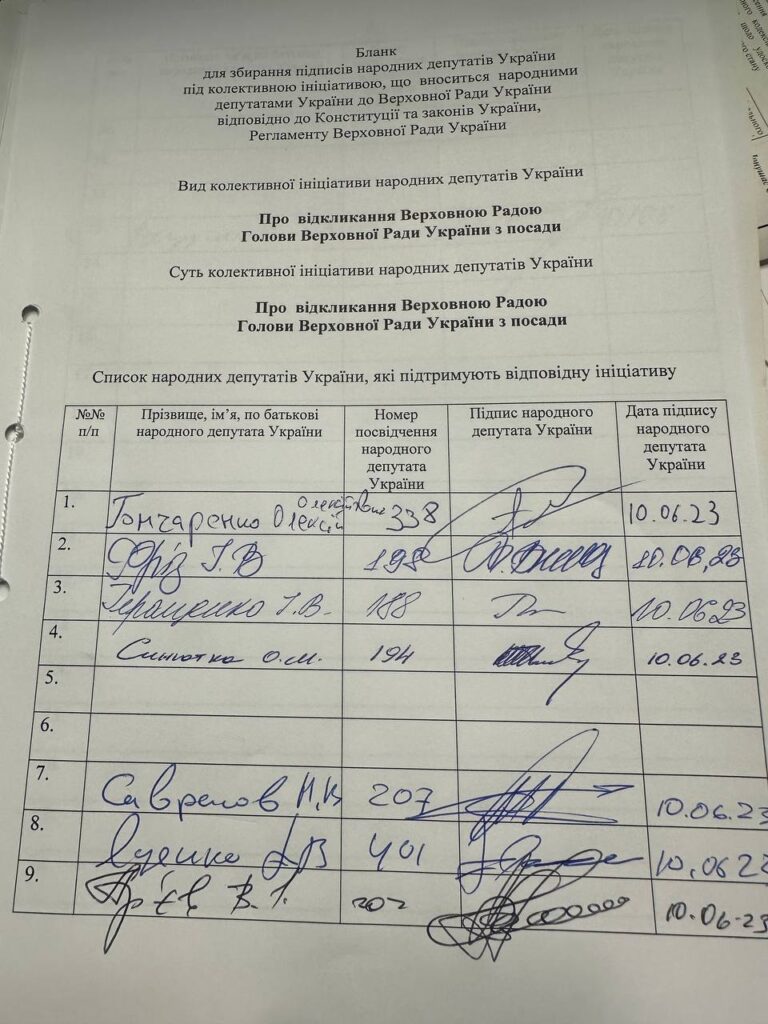 Бланк
для збирання підписів народних депутатів України
під колективною ініціативою, що вноситься народними
депутатами України до Верховної Ради України
відповідно до Конституції та законів України,
Регламенту Верховної Ради України
Вид колективної ініціативи народних депутатів України
Про відкликання Верховною Радою
Голови Верховної Ради України з посади
Суть колективної ініціативи народних депутатів України
Про відкликання Верховною Радою
Голови Верховної Ради України з посади
Список народних депутатів України, які підтримують відповідну ініціативу
№№ п/п
Прізвище, ім’я, по батькові народного депутата України
Номер посвідчення народного депутата України
Підпис народного депутата України
Дата підпису народного депутата України
1. Гончаренко Олексій Олексійович 338 10.06.23
2. Фріз І.В 198 10.06.23
3. Геращенко І.В. 188 10.06.23
4. Синютка О.М. 194 10.06.23
5.
6.
7. Саврасов М.В 207 10.06.23
8. І.В 401 10.06
9. Ар'єв В.І. 202 10.06.23